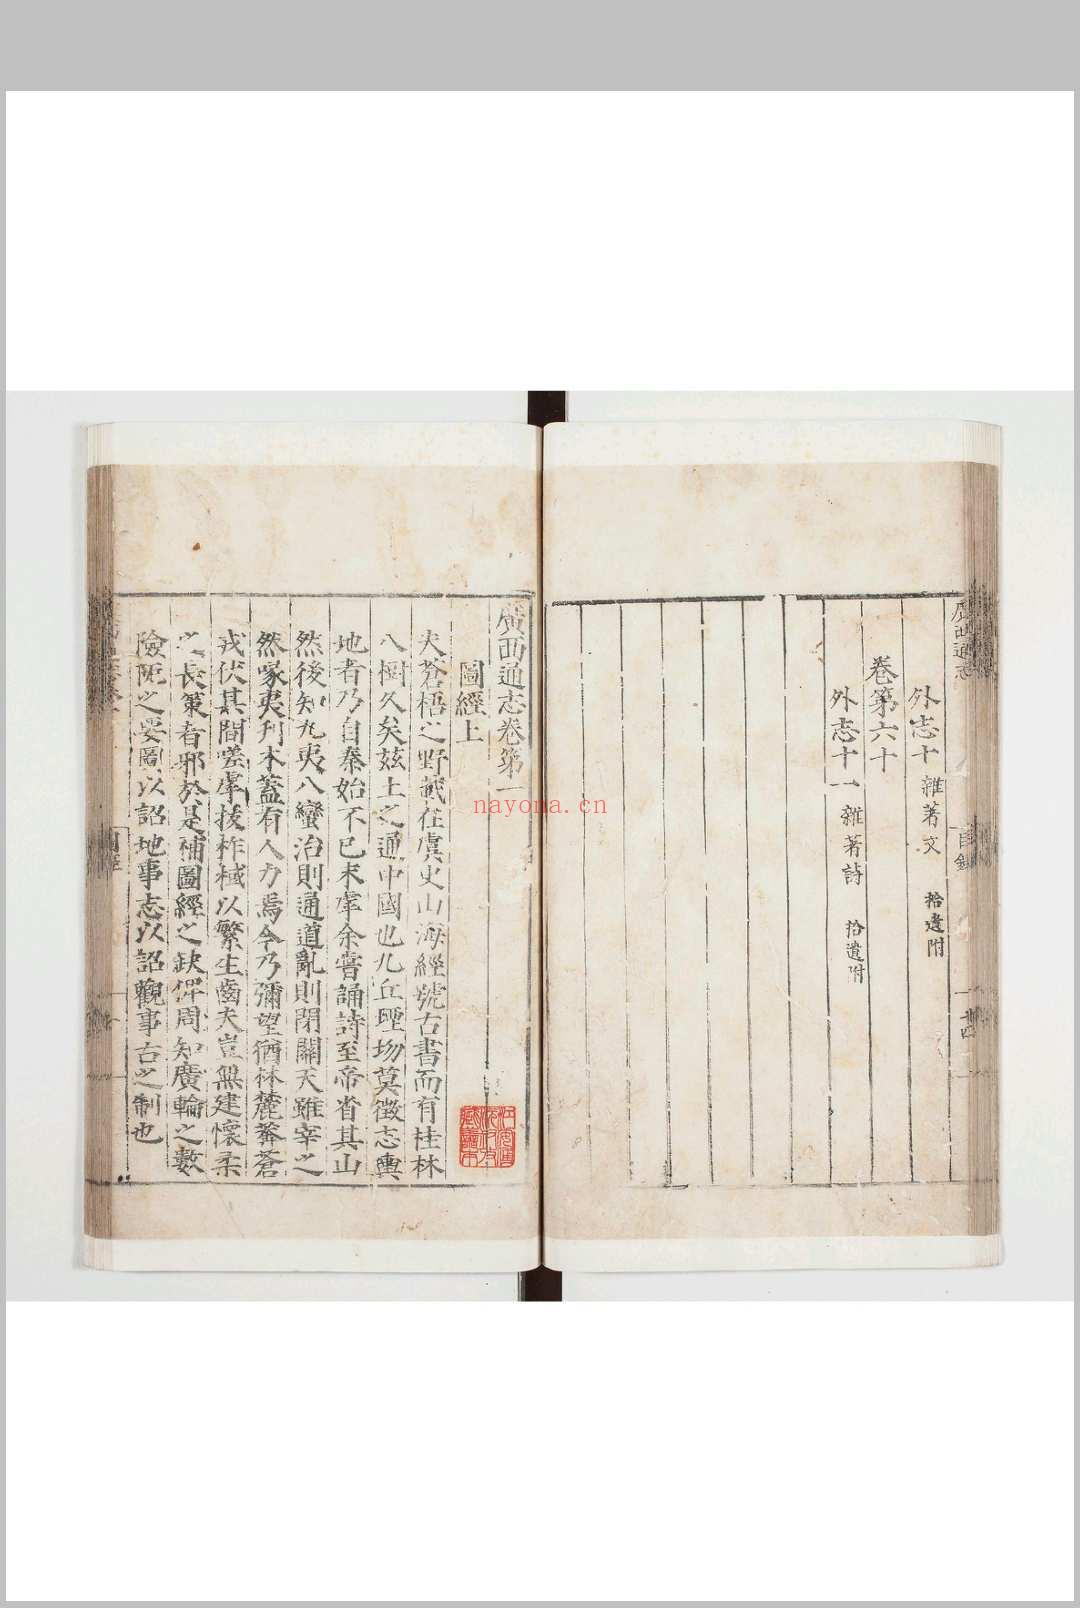 廣西通志
外志十 雜著文 拾遺附
卷第六十
外志十一 雜著詩 拾遺附
目錄
廣西通志卷第一
圖經上
夫蒼梧之野載在虞史山海經號古書而有桂林
八樹久矣茲土之通中國也九丘堙坳莫徵志輿
地者乃自秦始不已末虖余嘗誦詩至帝省其山
然後知九夷八蠻治則通道亂則閉關天雖宰之
然喙夷刋木蓋有人力焉今乃彌望猶林麓菶蒼
戎伏其間嗟虖拔柞棫以繁生齒夫豈無建懷柔
之長策者邪於是補圖經之缺俾周知廣輪之數
險阨之要圖以詔地事志以詔觀事古之制也
nayona.cn